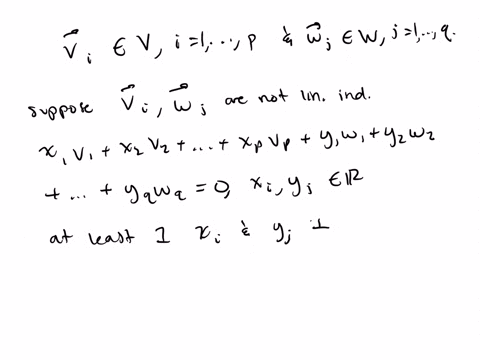 v⃗ᵢ ∈ V, i=1,...,p & w⃗ⱼ ∈ W, j=1,...,q.
suppose v⃗ᵢ, w⃗ⱼ are not lin. ind.
x₁v₁ + x₂v₂ + ... + xₚvₚ + y₁w₁ + y₂w₂
+ ... + y_q w_q = 0, xᵢ, yⱼ ∈ ℝ
at least 1 xᵢ & yⱼ